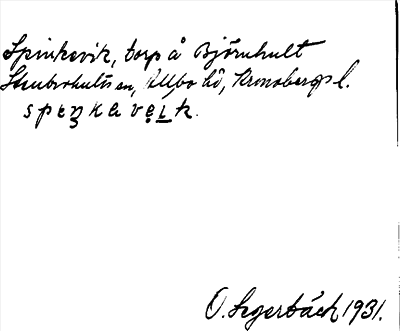 Spinkevik, torp å Björnhult
Stenbrohults sn, Allbo hd, Kronobergs l.
speŋkavɩk.
O. Segerbäck 1931.